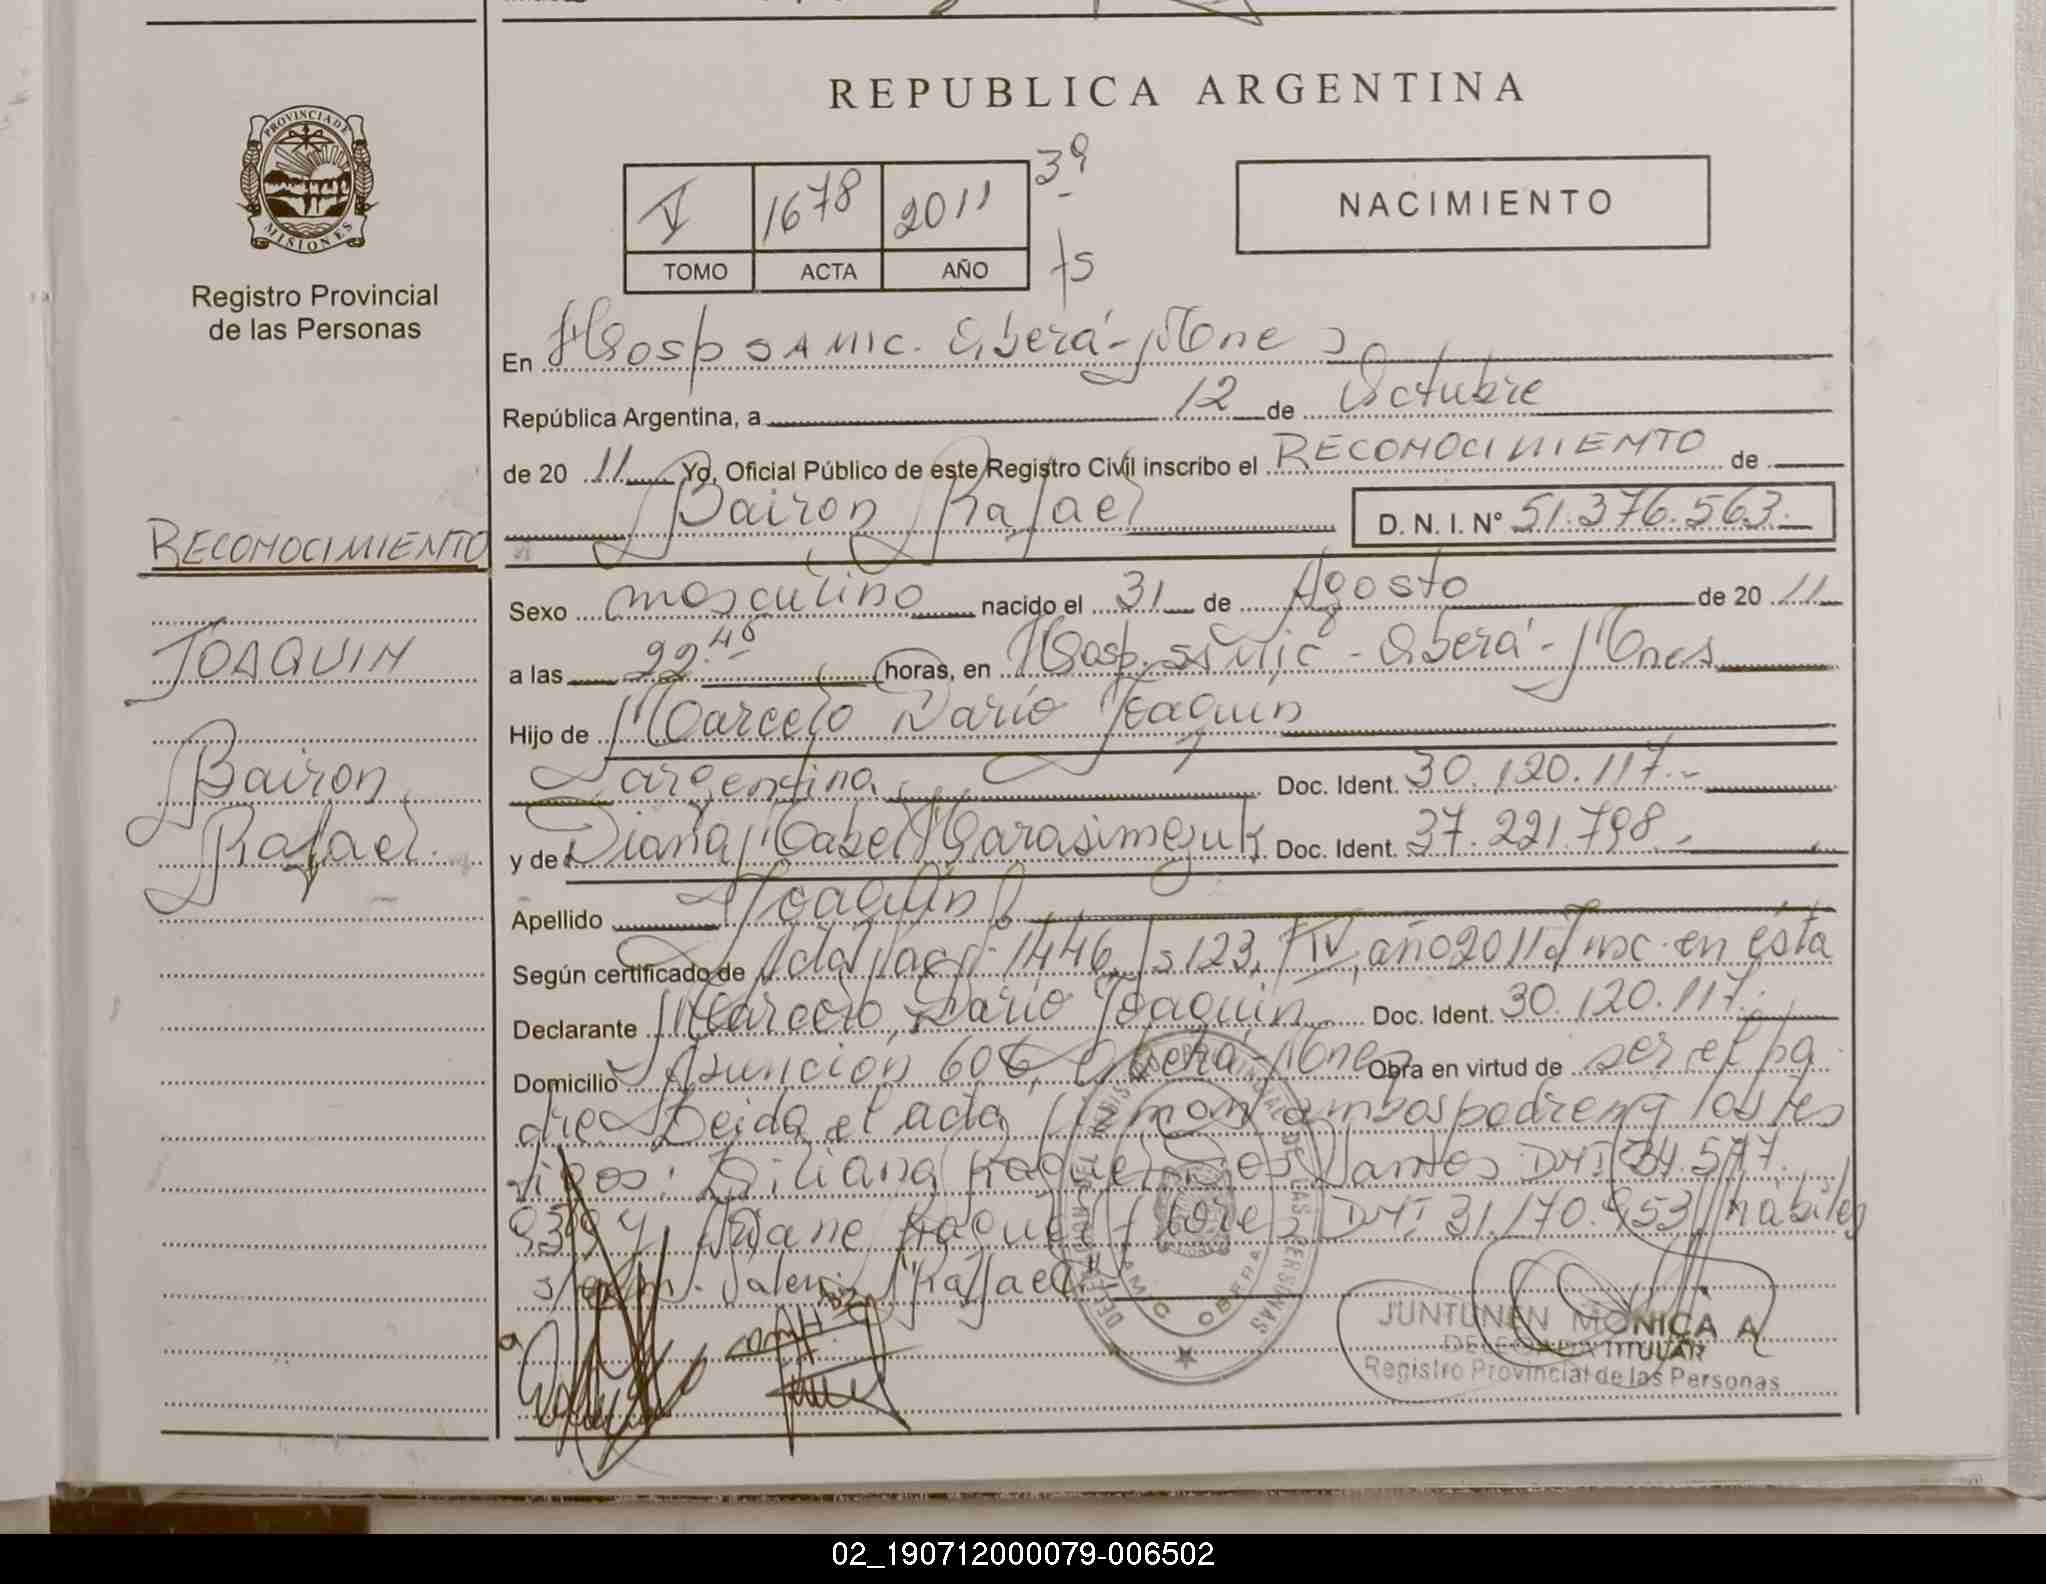 REPUBLICA ARGENTINA
PROVINCIA DE
MISIONES
Registro Provincial
de las Personas
V 1678 2011 39
TOMO ACTA AÑO
NACIMIENTO
En Hosp SAMIC. Oberá-Mnes
República Argentina, a 12 de Octubre
de 20 11 Yo, Oficial Público de este Registro Civil inscribo el RECONOCIMIENTO de
Bairon Rafael D. N. I. Nº 51.376.563.
RECONOCIMIENTO
JOAQUIN
Bairon
Rafael.
Sexo masculino nacido el 31 de Agosto de 20 11
a las 22.40 horas, en Hosp. SAMIC - Oberá - Mnes
Hijo de Marcelo Dario Joaquin
argentina Doc. Ident. 30.120.117.-
y de Diana Mabel Harasimezuk Doc. Ident. 37.221.798.-
Apellido Joaquin
Según certificado de Nac 1446, fs 123, T IV, año 2011 Insc. en ésta
Declarante Marcelo Dario Joaquin Doc. Ident. 30.120.117.
Domicilio Asunción 606, Oberá-Mnes Obra en virtud de ser el pa
dre Leida el acta firman ambos padres y los tes
tigos: Liliana Raquel Dos Santos DNI 34.577.
939 y Raquel Flores DNI 31.170.953 hábiles
Valen: "Rafael"
DELEGACION DEL REGISTRO PROVINCIAL DE LAS PERSONAS
SAMIC OBERA
JUNTUNEN MONICA A
DELEGADA TITULAR
Registro Provincial de las Personas
02_190712000079-006502